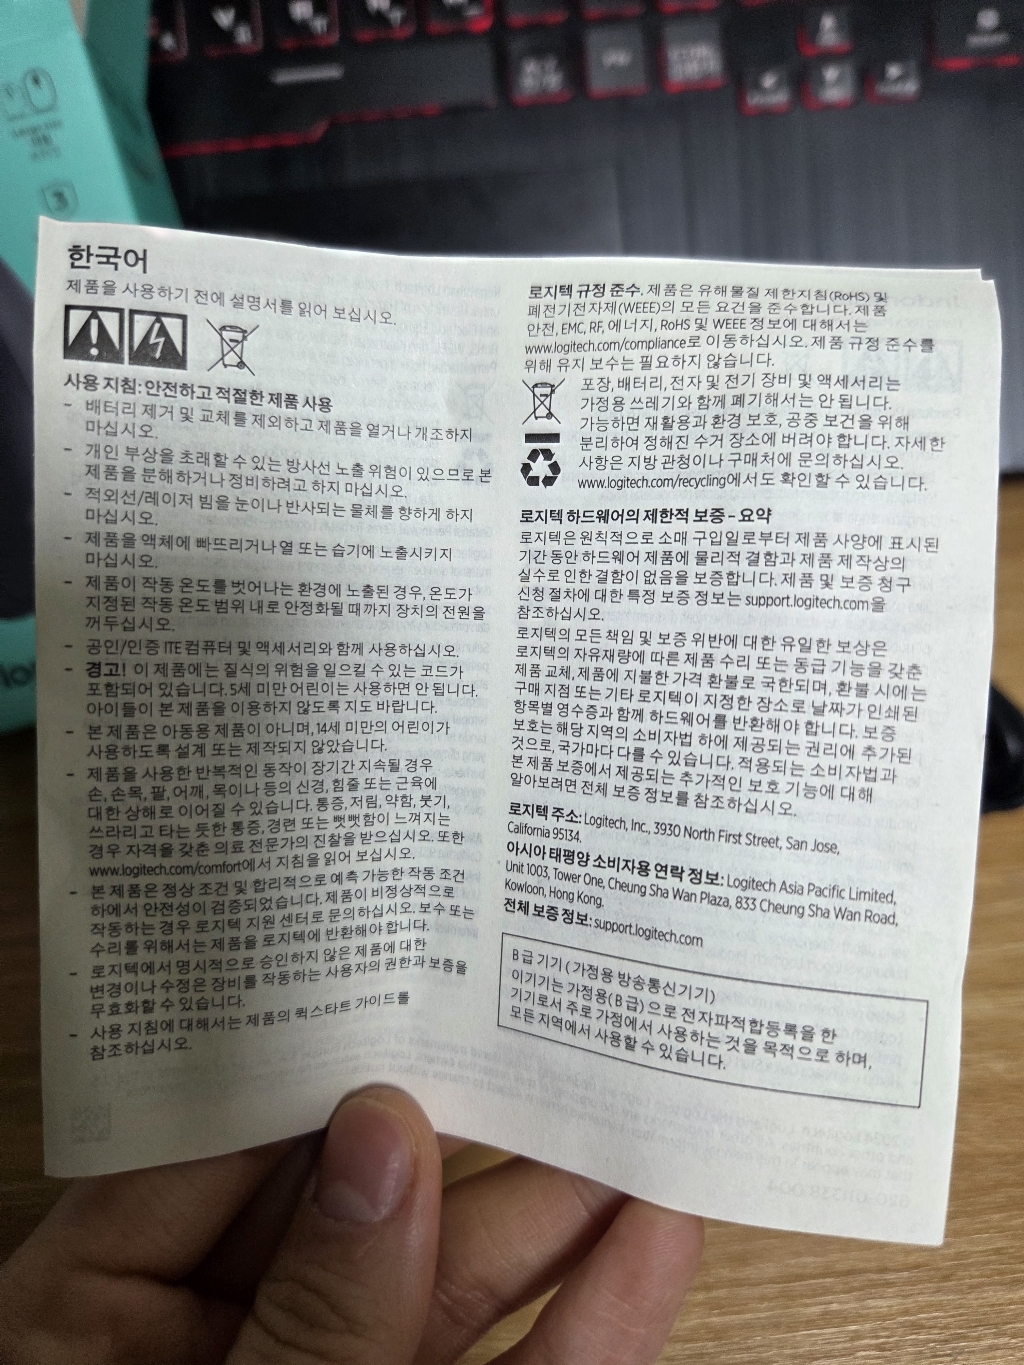 한국어
제품을 사용하기 전에 설명서를 읽어 보십시오.
사용 지침: 안전하고 적절한 제품 사용
- 배터리 제거 및 교체를 제외하고 제품을 열거나 개조하지
마십시오.
- 개인 부상을 초래할 수 있는 방사선 노출 위험이 있으므로 본
제품을 분해하거나 정비하려고 하지 마십시오.
- 적외선/레이저 빔을 눈이나 반사되는 물체를 향하게 하지
마십시오.
- 제품을 액체에 빠뜨리거나 열 또는 습기에 노출시키지
마십시오.
- 제품이 작동 온도를 벗어나는 환경에 노출된 경우, 온도가
지정된 작동 온도 범위 내로 안정화될 때까지 장치의 전원을
꺼두십시오.
- 공인/인증 ITE 컴퓨터 및 액세서리와 함께 사용하십시오.
- 경고! 이 제품에는 질식의 위험을 일으킬 수 있는 코드가
포함되어 있습니다. 5세 미만 어린이는 사용하면 안 됩니다.
아이들이 본 제품을 이용하지 않도록 지도 바랍니다.
- 본 제품은 아동용 제품이 아니며, 14세 미만의 어린이가
사용하도록 설계 또는 제작되지 않았습니다.
- 제품을 사용한 반복적인 동작이 장기간 지속될 경우
손, 손목, 팔, 어깨, 목이나 등의 신경, 힘줄 또는 근육에
대한 상해로 이어질 수 있습니다. 통증, 저림, 약함, 붓기,
쓰라리고 타는 듯한 통증, 경련 또는 뻣뻣함이 느껴지는
경우 자격을 갖춘 의료 전문가의 진찰을 받으십시오. 또한
www.logitech.com/comfort에서 지침을 읽어 보십시오.
- 본 제품은 정상 조건 및 합리적으로 예측 가능한 작동 조건
하에서 안전성이 검증되었습니다. 제품이 비정상적으로
작동하는 경우 로지텍 지원 센터로 문의하십시오. 보수 또는
수리를 위해서는 제품을 로지텍에 반환해야 합니다.
- 로지텍에서 명시적으로 승인하지 않은 제품에 대한
변경이나 수정은 장비를 작동하는 사용자의 권한과 보증을
무효화할 수 있습니다.
- 사용 지침에 대해서는 제품의 퀵스타트 가이드를
참조하십시오.
로지텍 규정 준수. 제품은 유해물질 제한지침(RoHS) 및
폐전기전자제(WEEE)의 모든 요건을 준수합니다. 제품
안전, EMC, RF, 에너지, RoHS 및 WEEE 정보에 대해서는
www.logitech.com/compliance로 이동하십시오. 제품 규정 준수를
위해 유지 보수는 필요하지 않습니다.
포장, 배터리, 전자 및 전기 장비 및 액세서리는
가정용 쓰레기와 함께 폐기해서는 안 됩니다.
가능하면 재활용과 환경 보호, 공중 보건을 위해
분리하여 정해진 수거 장소에 버려야 합니다. 자세한
사항은 지방 관청이나 구매처에 문의하십시오.
www.logitech.com/recycling에서도 확인할 수 있습니다.
로지텍 하드웨어의 제한적 보증 – 요약
로지텍은 원칙적으로 소매 구입일로부터 제품 사양에 표시된
기간 동안 하드웨어 제품에 물리적 결함과 제품 제작상의
실수로 인한 결함이 없음을 보증합니다. 제품 및 보증 청구
신청 절차에 대한 특정 보증 정보는 support.logitech.com을
참조하십시오.
로지텍의 모든 책임 및 보증 위반에 대한 유일한 보상은
로지텍의 자유재량에 따른 제품 수리 또는 동급 기능을 갖춘
제품 교체, 제품에 지불한 가격 환불로 국한되며, 환불 시에는
구매 지점 또는 기타 로지텍이 지정한 장소로 날짜가 인쇄된
항목별 영수증과 함께 하드웨어를 반환해야 합니다. 보증
보호는 해당 지역의 소비자법 하에 제공되는 권리에 추가된
것으로, 국가마다 다를 수 있습니다. 적용되는 소비자법과
본 제품 보증에서 제공되는 추가적인 보호 기능에 대해
알아보려면 전체 보증 정보를 참조하십시오.
로지텍 주소: Logitech, Inc., 3930 North First Street, San Jose,
California 95134.
아시아 태평양 소비자용 연락 정보: Logitech Asia Pacific Limited,
Unit 1003, Tower One, Cheung Sha Wan Plaza, 833 Cheung Sha Wan Road,
Kowloon, Hong Kong.
전체 보증 정보: support.logitech.com
B 급 기기 ( 가정용 방송통신기기 )
이기기는 가정용( B 급 ) 으로 전자파적합등록을 한
기기로서 주로 가정에서 사용하는 것을 목적으로 하며,
모든 지역에서 사용할 수 있습니다.